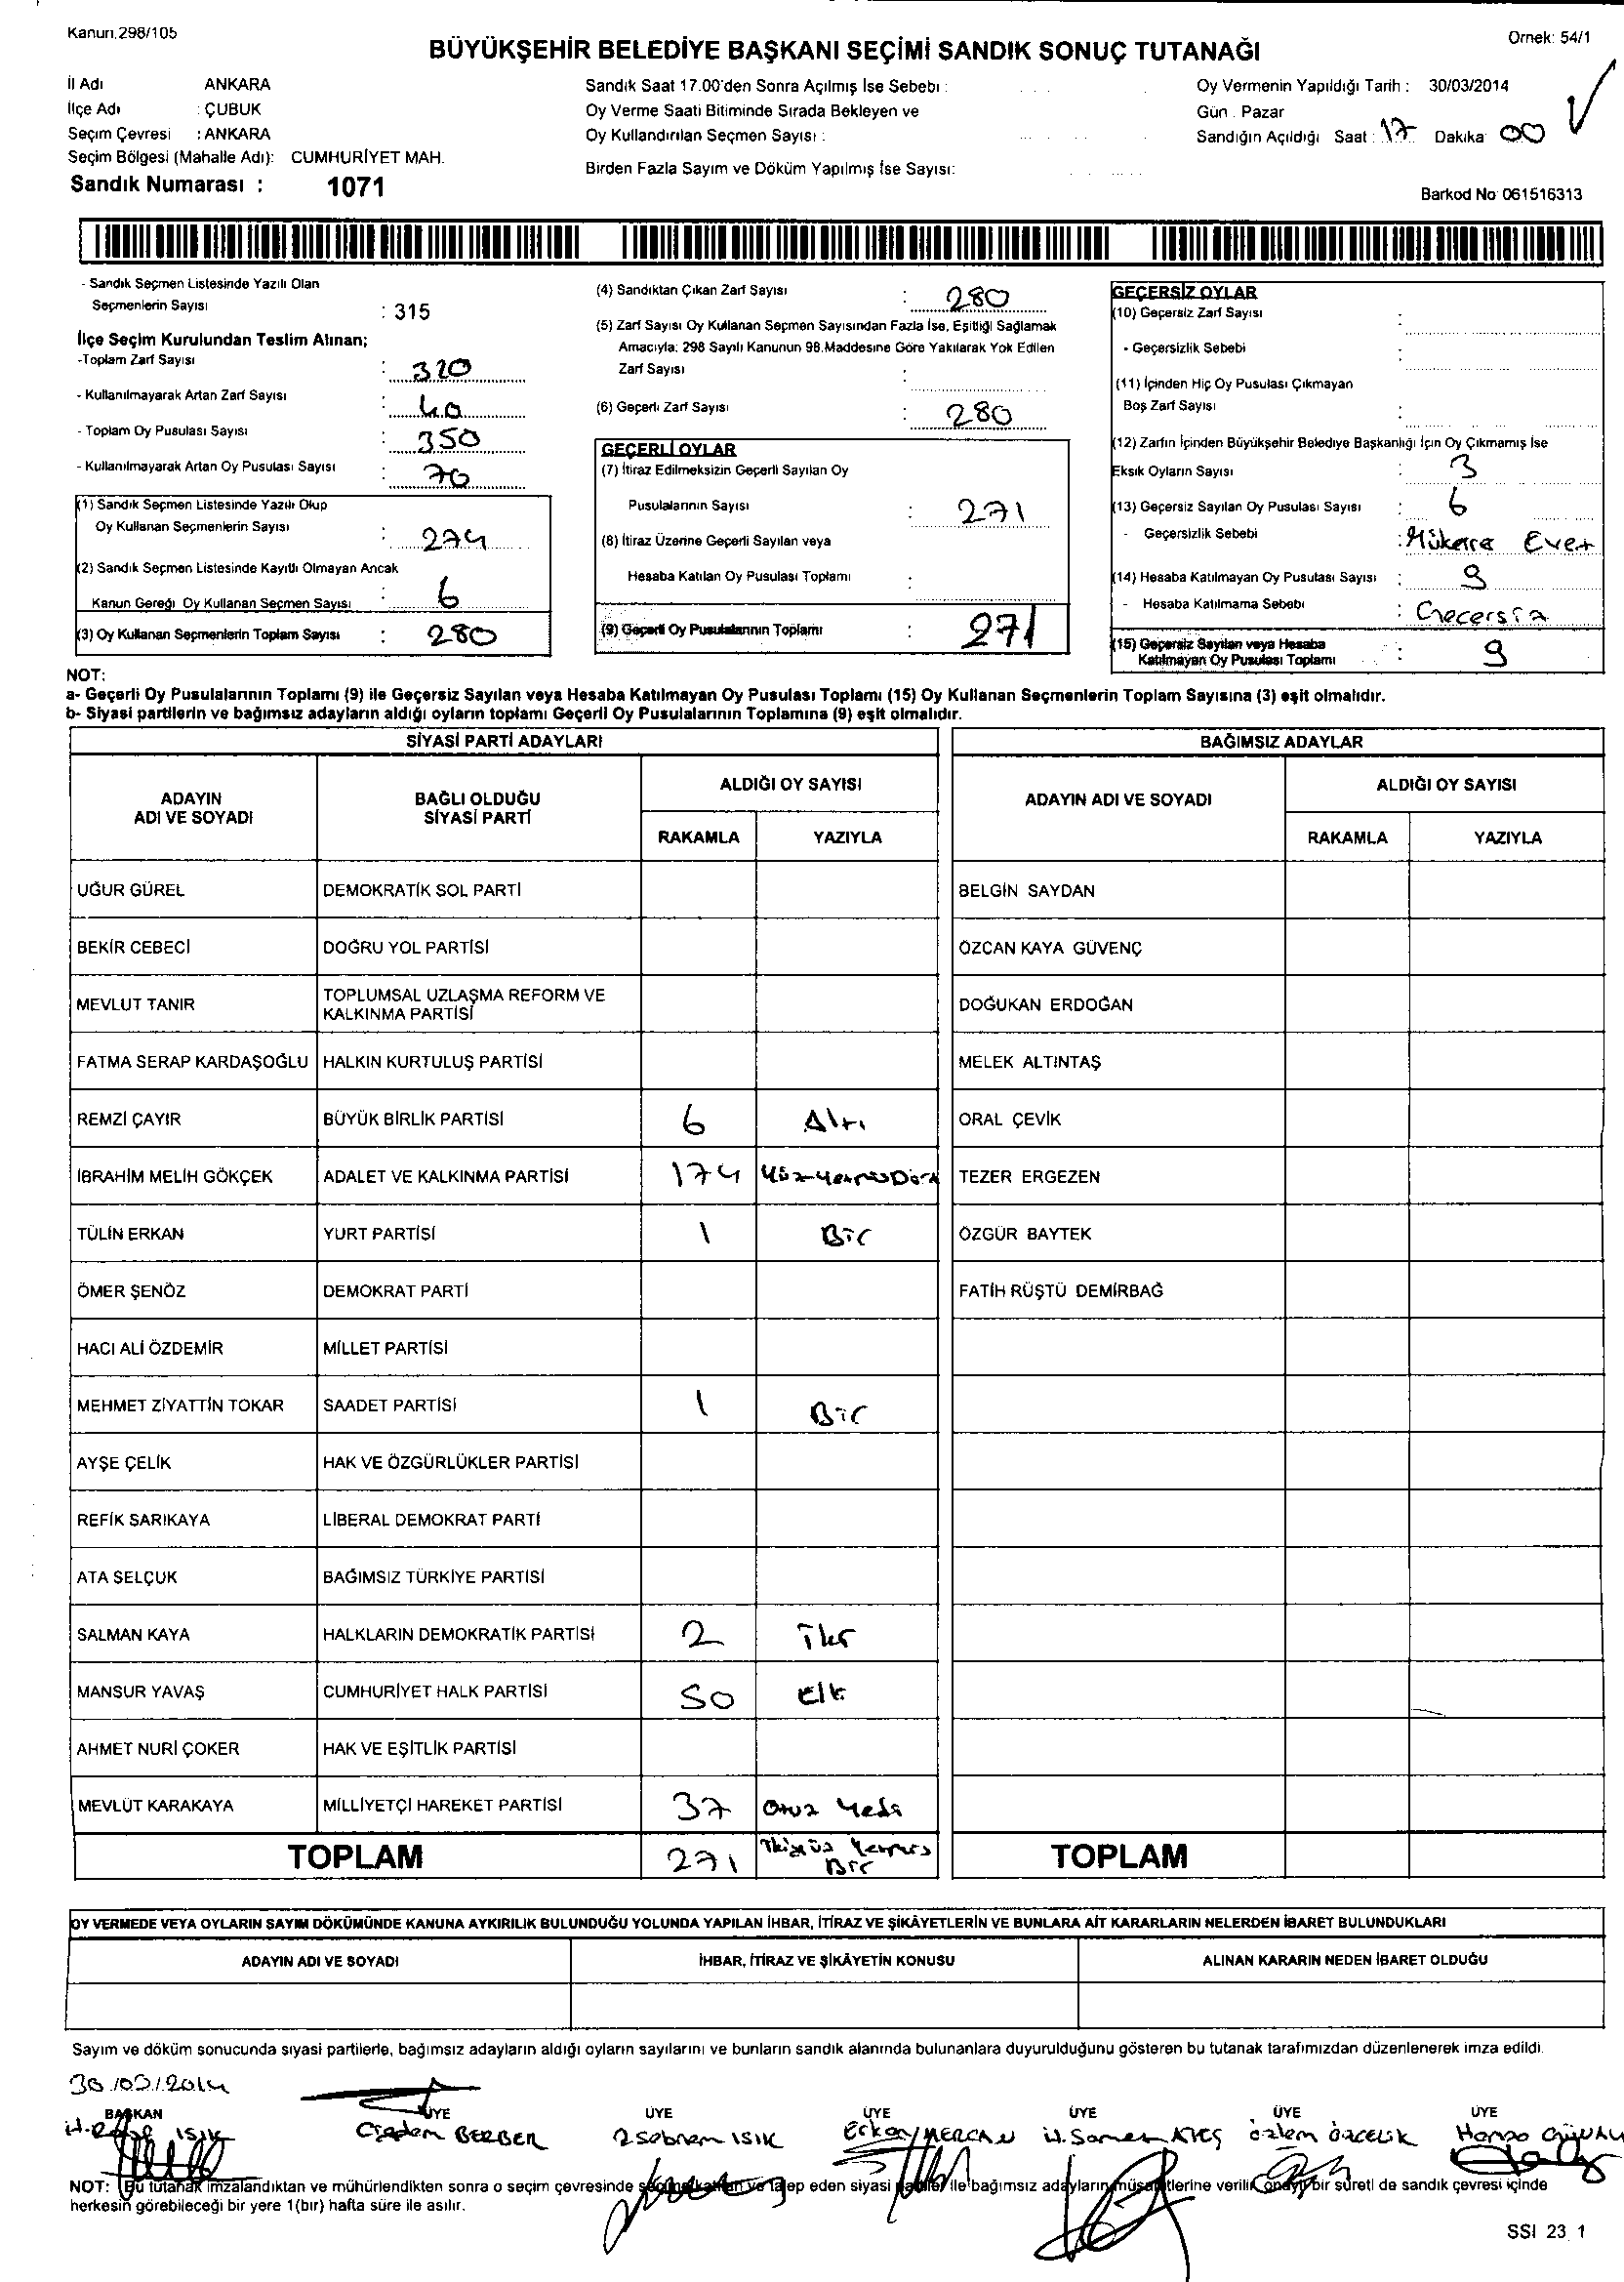 Kanun.298/105
Örnek: 54/1
BÜYÜKŞEHİR BELEDİYE BAŞKANI SEÇİMİ SANDIK SONUÇ TUTANAĞI
İl Adı ANKARA
İlçe Adı : ÇUBUK
Seçim Çevresi : ANKARA
Seçim Bölgesi (Mahalle Adı): CUMHURİYET MAH.
Sandık Numarası : 1071
Sandık Saat 17.00'den Sonra Açılmış İse Sebebi :
Oy Verme Saati Bitiminde Sırada Bekleyen ve
Oy Kullandırılan Seçmen Sayısı :
Birden Fazla Sayım ve Döküm Yapılmış İse Sayısı:
Oy Vermenin Yapıldığı Tarih : 30/03/2014
Gün : Pazar
Sandığın Açıldığı Saat : 17 Dakika 00
Barkod No 061516313
- Sandık Seçmen Listesinde Yazılı Olan
Seçmenlerin Sayısı : 315
İlçe Seçim Kurulundan Teslim Alınan;
-Toplam Zarf Sayısı : 320
- Kullanılmayarak Artan Zarf Sayısı : 40
- Toplam Oy Pusulası Sayısı : 350
- Kullanılmayarak Artan Oy Pusulası Sayısı : 70
(1) Sandık Seçmen Listesinde Yazılı Olup
Oy Kullanan Seçmenlerin Sayısı : 274
(2) Sandık Seçmen Listesinde Kayıtlı Olmayan Ancak
Kanun Gereği Oy Kullanan Seçmen Sayısı : 6
(3) Oy Kullanan Seçmenlerin Toplam Sayısı : 280
(4) Sandıktan Çıkan Zarf Sayısı : 280
(5) Zarf Sayısı Oy Kullanan Seçmen Sayısından Fazla İse, Eşitliği Sağlamak
Amacıyla: 298 Sayılı Kanunun 98.Maddesine Göre Yakılarak Yok Edilen
Zarf Sayısı :
(6) Geçerli Zarf Sayısı : 280
GEÇERLİ OYLAR
(7) İtiraz Edilmeksizin Geçerli Sayılan Oy
Pusulalarının Sayısı : 271
(8) İtiraz Üzerine Geçerli Sayılan veya
Hesaba Katılan Oy Pusulası Toplamı :
(9) Geçerli Oy Pusulalarının Toplamı : 271
GEÇERSİZ OYLAR
(10) Geçersiz Zarf Sayısı :
- Geçersizlik Sebebi :
(11) İçinden Hiç Oy Pusulası Çıkmayan
Boş Zarf Sayısı :
(12) Zarfın İçinden Büyükşehir Belediye Başkanlığı İçin Oy Çıkmamış İse
Eksik Oyların Sayısı : 3
(13) Geçersiz Sayılan Oy Pusulası Sayısı : 6
- Geçersizlik Sebebi : Mükerre Evet
(14) Hesaba Katılmayan Oy Pusulası Sayısı : 9
- Hesaba Katılmama Sebebi : Gecersiz
(15) Geçersiz Sayılan veya Hesaba
Katılmayan Oy Pusulası Toplamı : 9
NOT:
a- Geçerli Oy Pusulalarının Toplamı (9) ile Geçersiz Sayılan veya Hesaba Katılmayan Oy Pusulası Toplamı (15) Oy Kullanan Seçmenlerin Toplam Sayısına (3) eşit olmalıdır.
b- Siyasi partilerin ve bağımsız adayların aldığı oyların toplamı Geçerli Oy Pusulalarının Toplamına (9) eşit olmalıdır.
SİYASİ PARTİ ADAYLARI
ADAYIN ADI VE SOYADI
BAĞLI OLDUĞU SİYASİ PARTİ
ALDIĞI OY SAYISI
RAKAMLA YAZIYLA
UĞUR GÜREL DEMOKRATİK SOL PARTİ
BEKİR CEBECİ DOĞRU YOL PARTİSİ
MEVLUT TANIR TOPLUMSAL UZLAŞMA REFORM VE KALKINMA PARTİSİ
FATMA SERAP KARDAŞOĞLU HALKIN KURTULUŞ PARTİSİ
REMZİ ÇAYIR BÜYÜK BİRLİK PARTİSİ 6 Altı
İBRAHİM MELİH GÖKÇEK ADALET VE KALKINMA PARTİSİ 174 Yüz Yetmiş Dört
TÜLİN ERKAN YURT PARTİSİ 1 Bir
ÖMER ŞENÖZ DEMOKRAT PARTİ
HACI ALİ ÖZDEMİR MİLLET PARTİSİ
MEHMET ZİYATTİN TOKAR SAADET PARTİSİ 1 Bir
AYŞE ÇELİK HAK VE ÖZGÜRLÜKLER PARTİSİ
REFİK SARIKAYA LİBERAL DEMOKRAT PARTİ
ATA SELÇUK BAĞIMSIZ TÜRKİYE PARTİSİ
SALMAN KAYA HALKLARIN DEMOKRATİK PARTİSİ 2 İki
MANSUR YAVAŞ CUMHURİYET HALK PARTİSİ 50 Elli
AHMET NURİ ÇOKER HAK VE EŞİTLİK PARTİSİ
MEVLÜT KARAKAYA MİLLİYETÇİ HAREKET PARTİSİ 37 Otuz Yedi
TOPLAM 271 İkiyüz Yetmiş Bir
BAĞIMSIZ ADAYLAR
ADAYIN ADI VE SOYADI
ALDIĞI OY SAYISI
RAKAMLA YAZIYLA
BELGİN SAYDAN
ÖZCAN KAYA GÜVENÇ
DOĞUKAN ERDOĞAN
MELEK ALTINTAŞ
ORAL ÇEVİK
TEZER ERGEZEN
ÖZGÜR BAYTEK
FATİH RÜŞTÜ DEMİRBAĞ
TOPLAM
OY VERMEDE VEYA OYLARIN SAYIM DÖKÜMÜNDE KANUNA AYKIRILIK BULUNDUĞU YOLUNDA YAPILAN İHBAR, İTİRAZ VE ŞİKÂYETLERİN VE BUNLARA AİT KARARLARIN NELERDEN İBARET BULUNDUKLARI
ADAYIN ADI VE SOYADI İHBAR, İTİRAZ VE ŞİKÂYETİN KONUSU ALINAN KARARIN NEDEN İBARET OLDUĞU
Sayım ve döküm sonucunda siyasi partilerle, bağımsız adayların aldığı oyların sayılarını ve bunların sandık alanında bulunanlara duyurulduğunu gösteren bu tutanak tarafımızdan düzenlenerek imza edildi.
30/03/2014
BAŞKAN ÜYE ÜYE ÜYE ÜYE ÜYE ÜYE
IŞIK Çiğdem BERBER IŞIK Erkay MERCAN ATEŞ özlem özçelik
NOT: Bu tutanak imzalandıktan ve mühürlendikten sonra o seçim çevresinde seçime katılan ve talep eden siyasi partiler ile bağımsız adayların müşahitlerine verilir, onaylı bir sureti de sandık çevresi içinde
herkesin görebileceği bir yere 1(bir) hafta süre ile asılır.
SSI 23 1